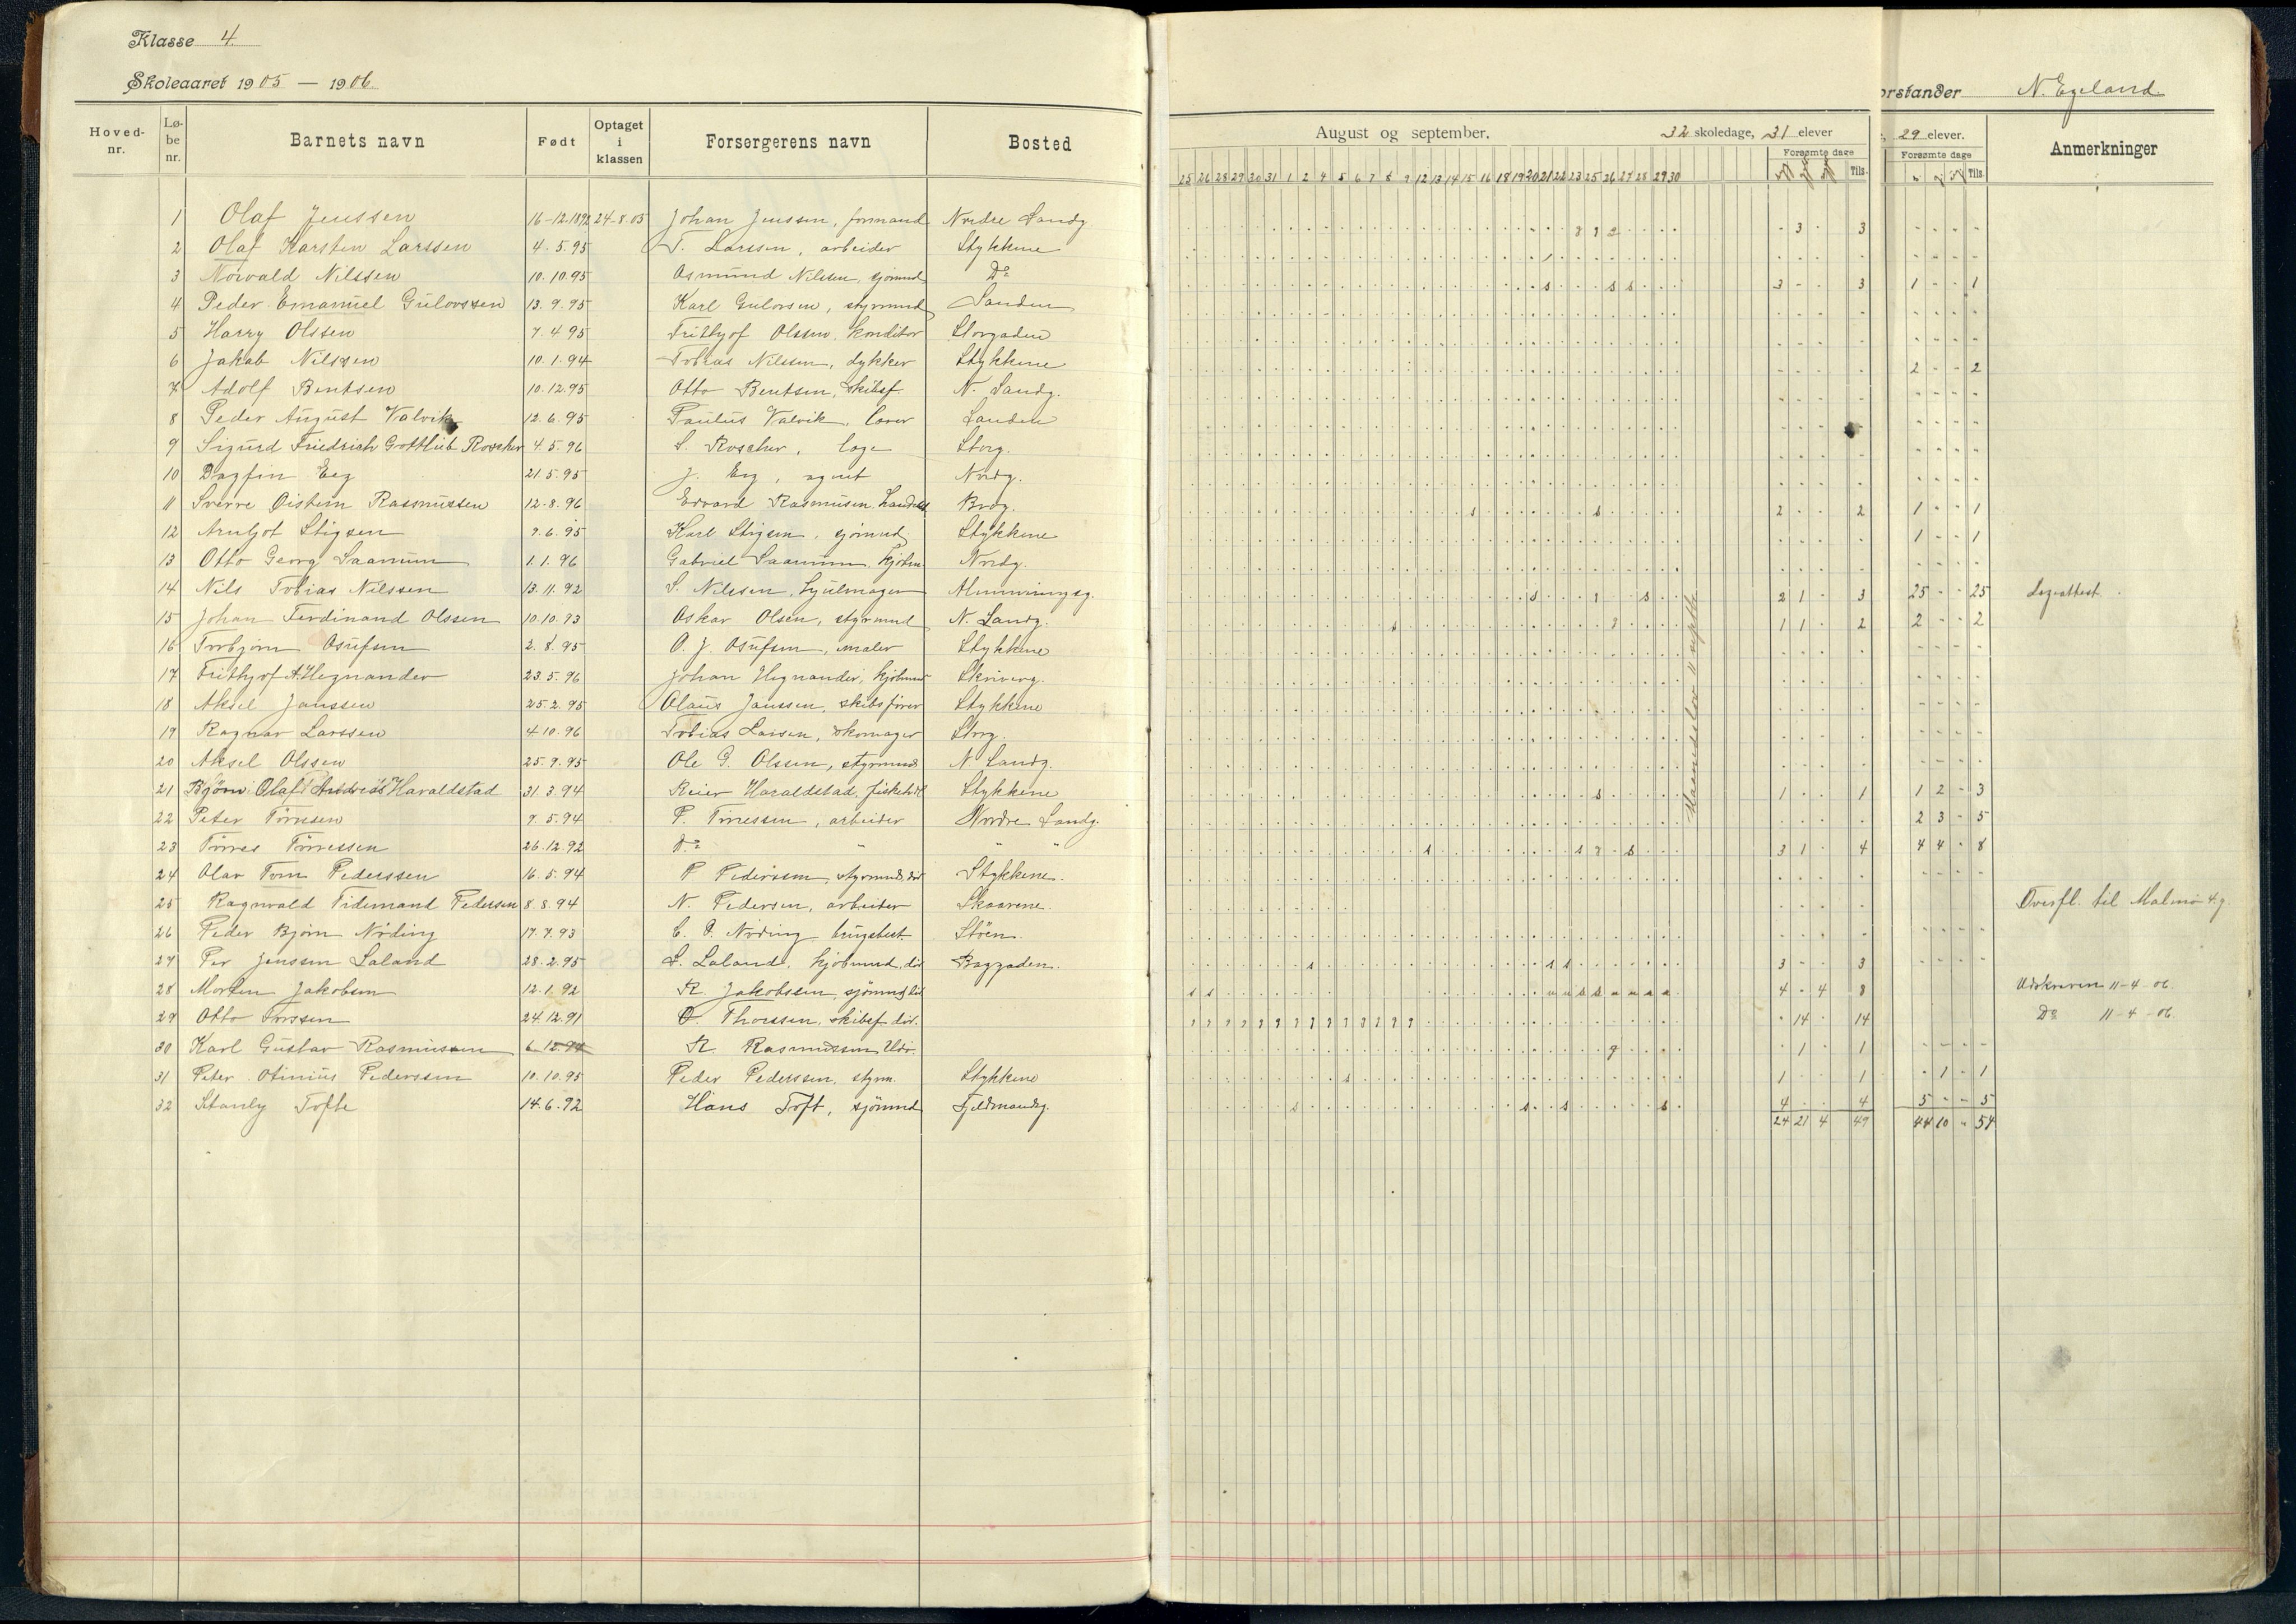 Klasse 4.
Skoleaaret 1905 — 1906.
Hoved-nr. Lø-be nr. Barnets navn Født Optaget i klassen Forsørgerens navn Bosted
1 Olaf Jenssen 16-12.1892 24-8.05 Johan Jenssen, formand Nordre Sandg
2 Olaf Karsten Larssen 4.5.95 T. Larssen, arbeider Stykkene
3 Norvald Nilssen 10.10.95 Osmund Nilsen, sjömnd Do
4 Peder Emanuel Gulovssen 13.9.95 Karl Gulovsen, styrmnd Sanden
5 Harry Olssen 7.4.95 Frithjof Olssen, konditor Storgaden
6 Jakob Nilssen 10.1.94 Tobias Nilssen, dykker Stykkene
7 Adolf Bentsen 10.12.95 Otto Bentsen, skibsf. N. Sandg.
8 Peder August Valvik 12.6.95 Paulus Valvik, Sanden
9 Sigurd Friedrich Gottlieb Roscher 4.5.96 S. Roscher, læge Storg.
10 Dagfin Eeg 21.5.95 J. Eeg, agent Nordg.
11 Sverre Øistein Rasmussen 12.8.96 Edvard Rasmusen, Brog.
12 Arnljot Stigsen 9.6.95 Karl Stigsen, sjömnd Stykkene
13 Otto Georg Saanum 1.1.96 Gabriel Saanum, kjöbm. Nordg.
14 Nils Tobias Nilssen 13.11.92 S. Nilssen, hjulmager Almenningsg.
15 Johan Ferdinand Olssen 10.10.93 Oskar Olsen, styrmnd N. Sandg.
16 Torbjörn Osufsen 2.8.95 O. J. Osufsen, maler Stykkene
17 Frithjof A. Hegnander 23.5.96 Johan Hegnander, kjöbmnd Skriverg.
18 Aksel Janssen 25.2.95 Olaus Janssen, skibsförer Stykkene
19 Ragnar Larssen 4.10.96 Tobias Larsen, skomager Storg.
20 Aksel Olssen 25.9.95 Ole G. Olssen, styrmnd N Sandg.
21 Björn Olaf Andreas Haraldstad 31.3.94 Reier Haraldstad, Stykkene
22 Peter Törresen 7.5.94 P. Törressen, arbeider Nordre Sandg.
23 Törres Törressen 26.12.92 Do " " "
24 Olav Tom Pederssen 16.5.94 P Pederssen, styrmnd, död Stykkene.
25 Ragnvald Tidemand Pedersen 8.8.94 N. Pedersen, arbeider Skaarene.
26 Peder Björn Nöding 17.7.93 C. P. Nöding Stöen
27 Per Jenssen Saland 28.2.95 S. Saland, kjöbmnd, död Baggaden.
28 Morten Jakobsen 12.1.92 R. Jakobssen, sjömnd, död
29 Otto Torssen 24.12.91 O. Thorssen, skibsf. död.
30 Karl Gustav Rasmussen 6-12.94 R. Rasmussen
31 Peter Otinius Pederssen 10.10.95 Peder Pederssen, styrm. Stykkene
32 Stanly Tofte 14.6.92 Hans Toft, sjömnd Fjeldmandsg.
August og september. 32 skoledage, 31 elever
25 26 28 29 30 31 1 2 4 5 6 7 8 9 12 13 14 15 16 18 19 20 21 22 23 25 26 27 28 29 30 Forsømte dage Tils.
3 3
3 3
2 2
2 1 3
1 1 2
1 1
3 1 4
3 3
4 4 8
14 14
1 1
1 1
4 4
24 21 4 49
orstander N. Egeland
29 elever. Anmerkninger
Forsømte dage Tils.
1 1
2 2
1 1
1 1
25 25 Lægeattest.
2 2
1 2 3
2 3 5
4 4 8
Overfl. til Malmö 4.g.
Udskreven 11-4-06.
Do 11-4-06.
1 1
5 5
44 10 54